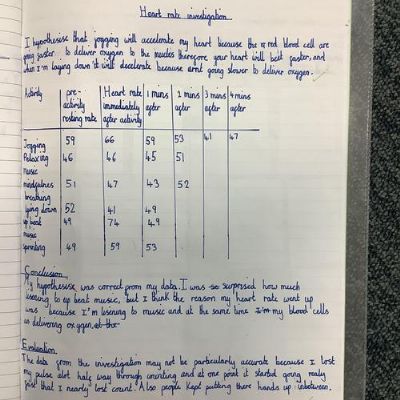 Heart rate investigation
I hypothesise that jogging will accelerate my heart because the red blood cell are
going faster to deliver oxygen to the muscles therefore your heart will beat faster, and
when I'm laying down it will decelerate because arnt going slower to deliver oxygen.
Activity pre-activity resting rate Heart rate immediately after activity 1 mins after 2 mins after 3 mins after 4 mins after
Jogging 59 66 59 53 41 47
Relaxing music 46 46 45 51
mindfulness breathing 51 47 43 52
lying down 52 41 49
up beat music 49 74 49
sprinting 49 59 53
Conclusion
My hypothesise was correct from my data. I was so surprised how much
listening to up beat music, but I think the reason my heart rate went up
was because I'm listening to music and at the same time my blood cells
delivering oxygen.
Evaluation
The data from the investigation may not be particularly accurate because I lost
my pulse half way through counting and at one point it started going really
fast that I nearly lost count. Also people kept putting there hands up inbetween.